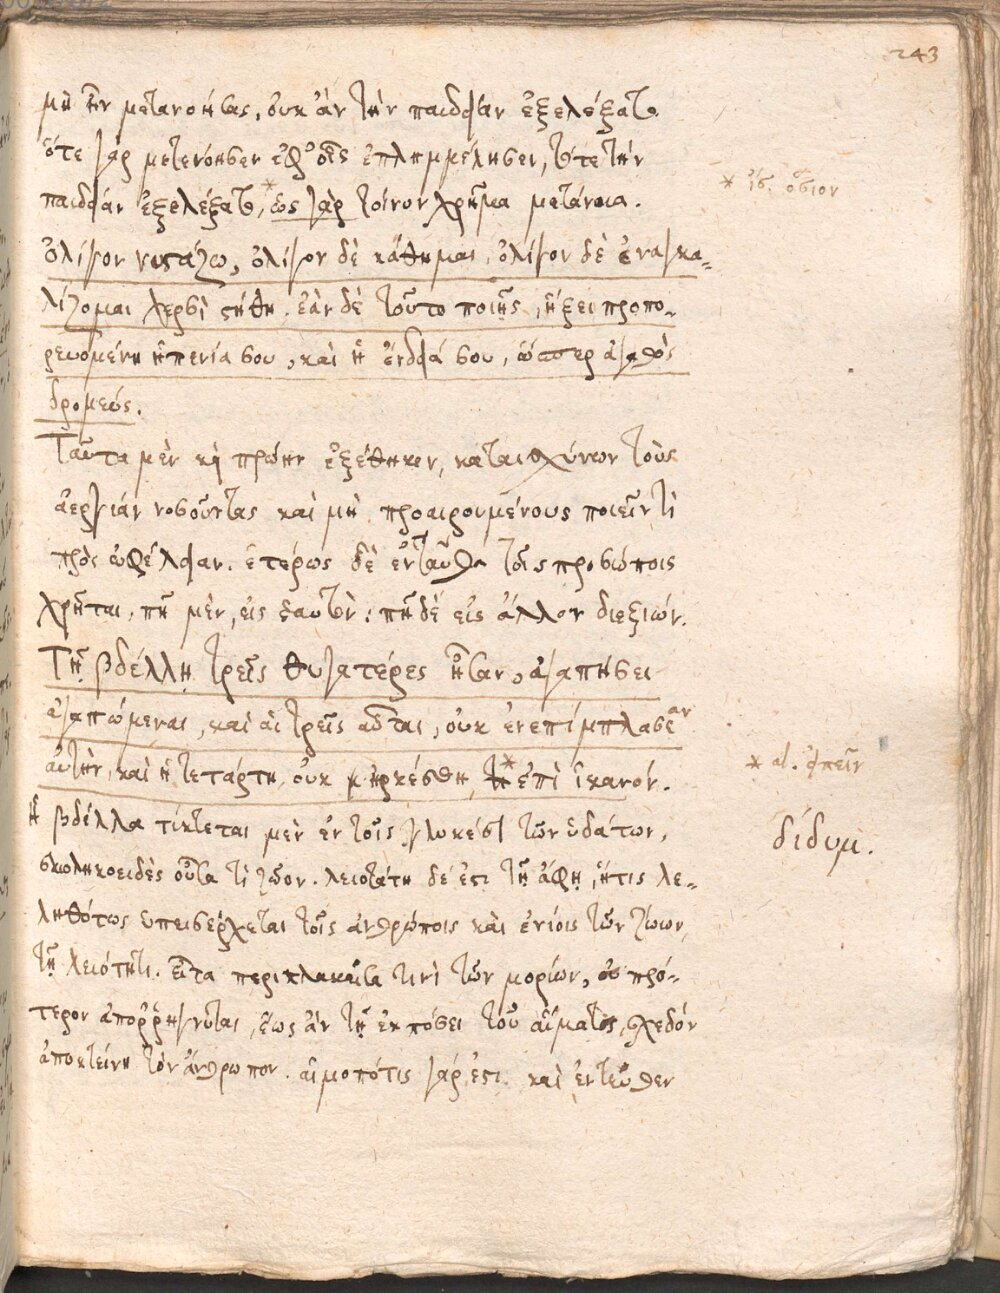 243
μὴ ἦν μετανοήσας, οὐκ ἂν τὴν παιδείαν ἐξελέξατο.
ὅτε γὰρ μετενόησεν ἐφ' οἷς ἐπλημμέλησεν, τότε τὴν
παιδείαν ἐξελέξατο, * ὡς γὰρ τοίνυν χρῆμα μετάνοια.
* ἴσ. ὅσιον
ὀλίγον νυστάζω, ὀλίγον δὲ κάθημαι, ὀλίγον δὲ ἐναγκα-
λίζομαι χερσὶ στήθη. ἐὰν δὲ τοῦτο ποιῇς, ἥξει προπο-
ρευομένη ἡ πενία σου, καὶ ἡ ἔνδειά σου, ὥσπερ ἀγαθὸς
δρομεύς.
Ταῦτα μὲν καὶ πρώην ἐξέθηκεν, καταισχύνων τοὺς
ἀεργίαν νοσοῦντας καὶ μὴ προαιρουμένους ποιεῖν τὶ
πρὸς ὠφέλειαν. ἑτέρως δὲ ἐνταῦθα τοῖς προσώποις
χρῆται, πῆ μὲν, εἰς ἑαυτὸν· πῆ δὲ εἰς ἄλλον διεξιών.
Τῇ βδέλλῃ τρεῖς θυγατέρες ἦσαν, ἀγαπήσει
ἀγαπώμεναι, καὶ αἱ τρεῖς αὗται, οὐκ ἐνεπίμπλασαν
αὐτήν, καὶ ἡ τετάρτη οὐκ ἠρκέσθη, * ἐπὶ ἱκανόν.
* αλ. εἰπεῖν
ἡ βδέλλα τίκτεται μὲν ἐν τοῖς γλυκέσι τῶν ὑδάτων,
δίδυμ.
σκωληκοειδὲς οὖσα τὶ ζῶον. λειοτάτη δέ ἐστι τῇ ἀφῇ, ἥτις λε-
ληθότως ὑπεισέρχεται τοῖς ἀνθρώποις καὶ ἐνίοις τῶν ζώων,
τῇ λειότητι. εἶτα περιπλακεῖσα τινὶ τῶν μορίων, οὐ πρό-
τερον ἀπορρήγνυται, ἕως ἂν τῇ ἐκπόσει τοῦ αἵματος, σχεδὸν
ἀποκτείνῃ τὸν ἄνθρωπον. αἱμοπότις γάρ ἐστι. καὶ ἐντεῦθεν